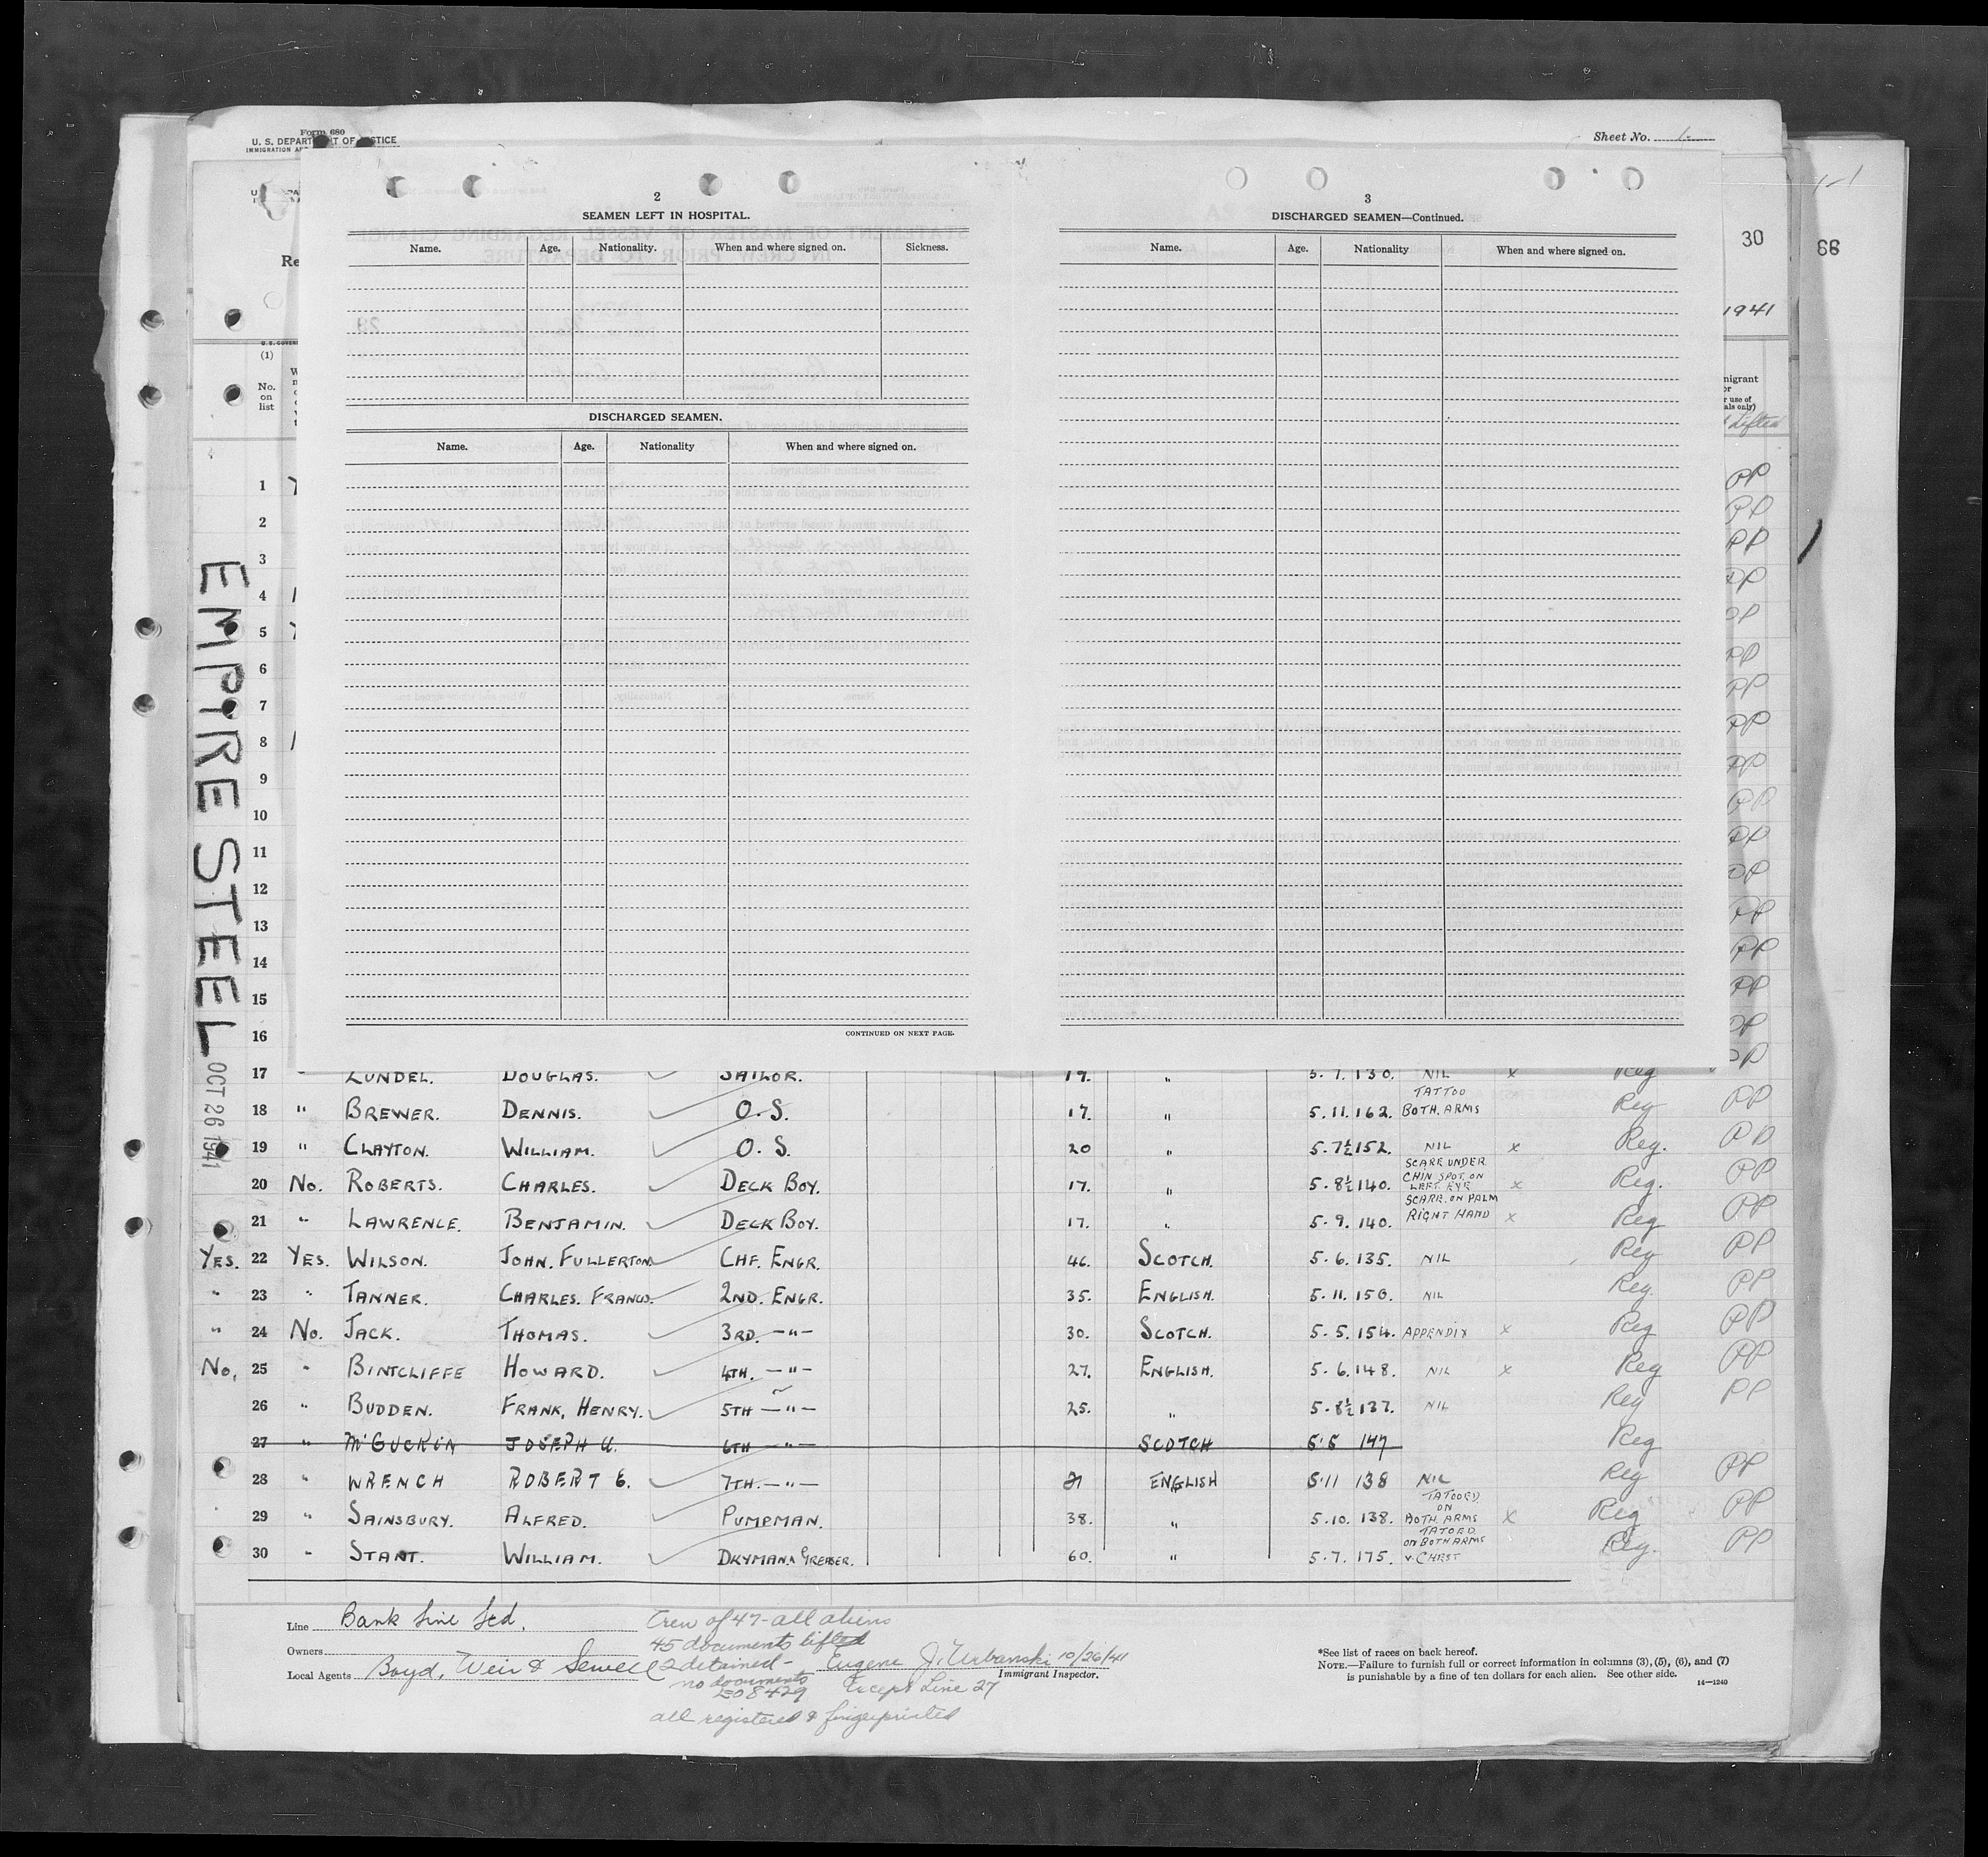 Form 680
U. S. DEPART T OF STICE
IMMIGRATION A
Sheet No. 1
2
SEAMEN LEFT IN HOSPITAL.
Name. Age. Nationality. When and where signed on. Sickness.
DISCHARGED SEAMEN.
Name. Age. Nationality When and where signed on.
CONTINUED ON NEXT PAGE.
3
DISCHARGED SEAMEN—Continued.
Name. Age. Nationality When and where signed on.
30
68
Re
1941
(1)
No. on list
migrant
or
r use of
als only)
Lifted
EMPIRE STEEL
OCT 26 1941
1 PP
2 PP
3 PP
4 PP
5 PP
6 PP
7 PP
8 PP
9 PP
10 PP
11 PP
12 PP
13 PP
14 PP
15 PP
16 PP
17 LUNDEL. DOUGLAS. SAILOR. 19. " 5. 7. 130. NIL x Reg PP
18 " BREWER. DENNIS. O.S. 17. " 5. 11. 162. TATTOO BOTH. ARMS Reg PP
19 " CLAYTON. WILLIAM. O. S. 20 " 5. 7½ 152. NIL x Reg. PP
20 No. ROBERTS. CHARLES. DECK BOY. 17. " 5. 8½ 140. SCARR UNDER CHIN SPOT ON LEFT EYE x Reg. PP
21 " LAWRENCE. BENJAMIN. DECK BOY. 17. " 5. 9. 140. SCARR. ON PALM RIGHT HAND x Reg PP
YES. 22 YES. WILSON. JOHN. FULLERTON CHF. ENGR. 46. SCOTCH. 5. 6. 135. NIL Reg PP
" 23 " TANNER. CHARLES. FRANCIS. 2ND. ENGR. 35. ENGLISH. 5. 11. 150. NIL Reg. PP
" 24 No. JACK. THOMAS. 3RD. —"— 30. SCOTCH. 5. 5. 154. APPENDIX x Reg PP
No. 25 " BINTCLIFFE HOWARD. 4TH. —"— 27. ENGLISH. 5. 6. 148. NIL x Reg PP
26 " BUDDEN. FRANK, HENRY. 5TH —"— 25. " 5. 8½ 137. NIL Reg PP
27 " McGUCKIN JOSEPH A. 6TH —"— SCOTCH 5.5 147 Reg
28 " WRENCH ROBERT E. 7TH. —"— 21 ENGLISH 5.11 138 NIL Reg PP
29 " SAINSBURY. ALFRED. PUMPMAN. 38. " 5. 10. 138. TATOOED ON BOTH. ARMS x Reg PP
30 " STANT. WILLIAM. DKYMAN & GREASER. 60. " 5. 7. 175. TATOED ON BOTH ARMS & CHEST Reg. PP
Line Bank Line Ltd.
Owners
Local Agents Boyd, Weir & Sewell
Crew of 47 - all aliens
45 documents lifted
2 detained -
no documents
E08429
all registered & fingerprinted
Eugene J. Urbanski 10/26/41
Immigrant Inspector.
Except Line 27
*See list of races on back hereof.
NOTE.—Failure to furnish full or correct information in columns (3), (5), (6), and (7)
is punishable by a fine of ten dollars for each alien. See other side.
14—1240